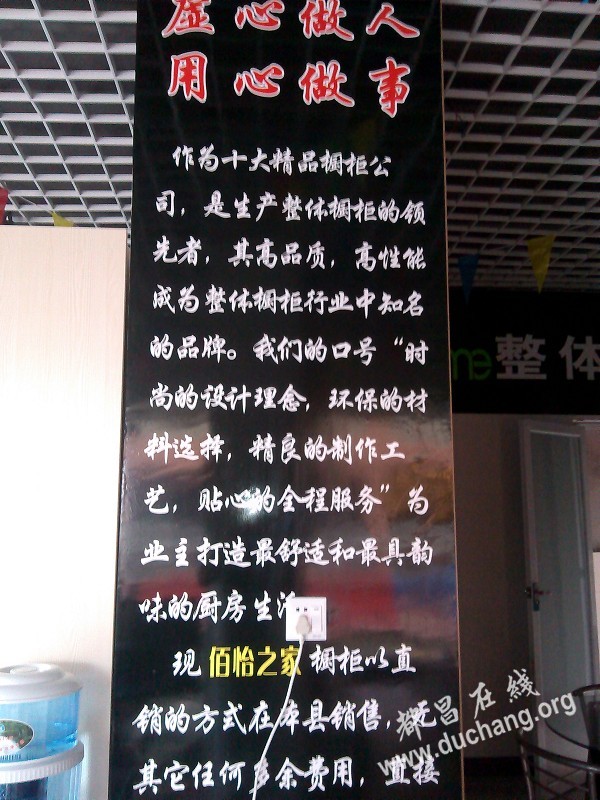 虚心做人
用心做事
作为十大精品橱柜公
司，是生产整体橱柜的领
先者，其高品质，高性能
成为整体橱柜行业中知名
的品牌。我们的口号“时
尚的设计理念，环保的材
料选择，精良的制作工
艺，贴心的全程服务”为
业主打造最舒适和最具韵
味的厨房生活
现佰怡之家橱柜以直
销的方式在本县销售，无
其它任何多余费用，直接
me整体
都昌在线
www.duchang.org